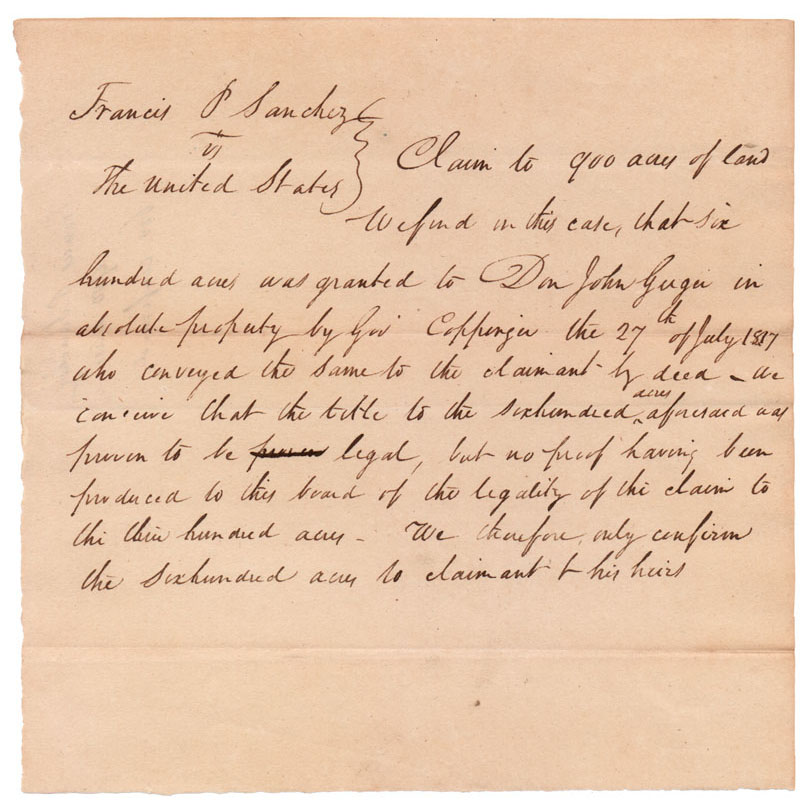 Francis P Sanchez
vs
The United States
Claim to 900 acres of land
We find in this case, that six
hundred acres was granted to Don John Geger in
absolute property by Gov Coppinger the 27th of July 1817
who conveyed the same to the claimant by deed - we
conceive that the title to the sixhundred acres aforesaid was
proven to be proven legal, but no proof having been
produced to this board of the legality of the claim to
the three hundred acres - We therefore only confirm
the sixhundred acres to claimant & his heirs